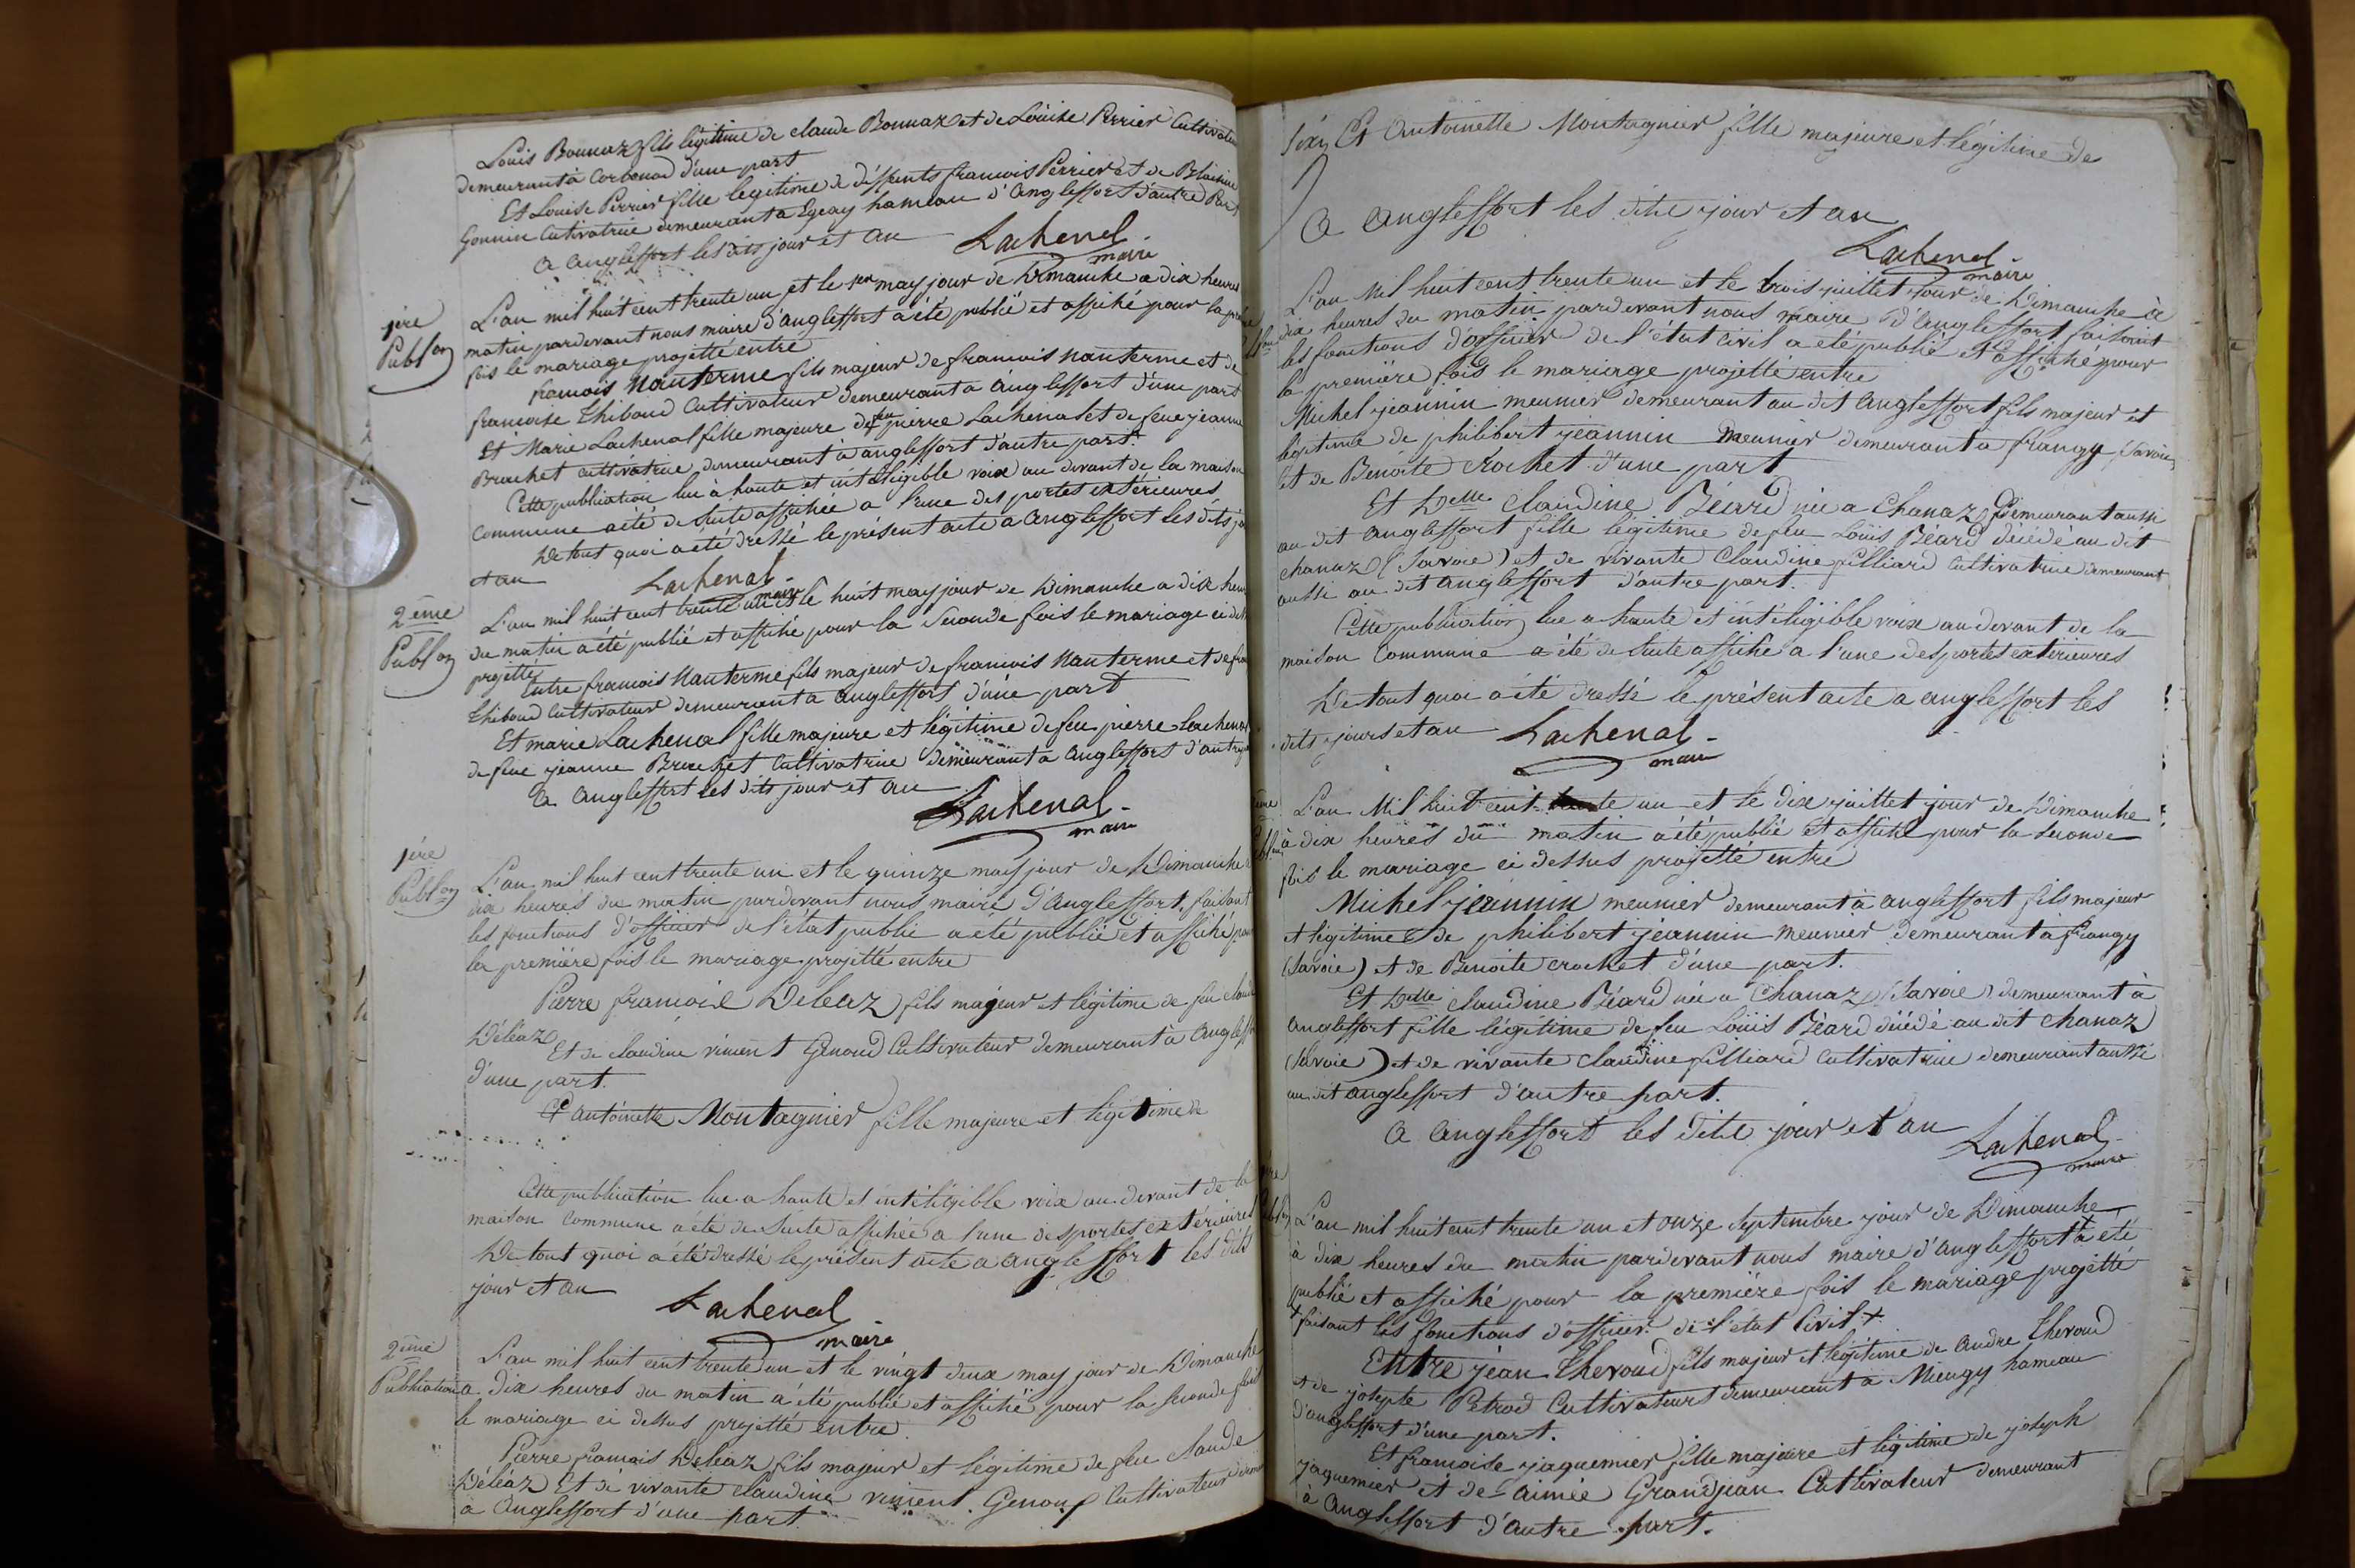 Louis Bonnaz fils légitime de claude Bonnaz et de Louise Perrier Cultivateur
demeurant à Corbonod d'une part
Et Louise Perrier fille légitime de déffunts francois Perrier et de Blaisine
Gonnin Cultivatrice demeurant a Egeay hameau d'Anglesfort d'autre Part
a Anglesfort les dits jour et an
Lachenal
maire
1ère
Publon
L'an mil huit cent trente un et le 1er may jour de Dimanche a dix heures
matin pardevant nous maire d'anglesfort a été publié et affiché pour la
fois le mariage projetté entre
francois Nanterme fils majeur de francois Nanterme et de
francoise Thiboud Cultivateur demeurant a Anglesfort d'une part
Et Marie Lachenal fille majeure de feu pierre Lachenal et de feue jeanne
Brachet cultivatrice demeurant à anglesfort d'autre part.
Cette publication lue à haute et intéligible voix au devant de la maison
Commune a été de Suite affichée a l'une des portes extérieures
De tout quoi a été dréssé le présent acte a Anglesfort les dits
et an
Lachenal
maire
2ème
Publon
L'an mil huit cent trente un et le huit may jour de Dimanche a dix
du matin a été publié et affiché pour la Seconde fois le mariage ci
projetté
Entre francois Nanterme fils majeur de francois Nanterme et de
Thiboud Cultivateur demeurant a Anglesfort d'une part
Et marie Lachenal fille majeure et légitime de feu pierre Lachenal
de feue jeanne Brachet Cultivatrice demeurant a Anglesfort d'autre
a Anglesfort les dits jour et an
Lachenal
maire
1ère
Publon
L'an mil huit cent trente un et le quinze may jour de Dimanche
dix heures du matin pardevant nous maire d'Anglesfort, faisant
les fonctions d'officier de l'état public a été publié et affiché pour
la première fois le mariage projetté entre
Pierre francois Deleaz fils majeur et légitime de feu claude
Déléaz
Et de claudine viment Genoud Cultivateur demeurant à
d'une part.
Et antoinette Montagnier fille majeure et légitime de
Cette publication lue a haute et intéligible voix au devant de la
maison Commune a été de Suite affichée a l'une des portes extérieures
De tout quoi a été dressé le présent acte a anglesfort les dits
jour et an
Lachenal
maire
2ème
Publication
L'an mil huit cent trente un et le vingt deux may jour de Dimanche
a dix heures du matin a été publié et affiché pour la seconde fois
le mariage ci dessus projetté entre
Pierre francois Deleaz fils majeur et légitime de feu claude
Déléaz Et de vivante claudine viment. Cultivateur
à Anglesfort d'une part
Et Antoinette Montagnier fille majeure et légitime de
a anglesfort les dits jour et an
Lachenal
maire
L'an Mil huit cent trente un et le trois juillet jour de Dimanche à
dix heures du matin pardevant nous maire d'Anglesfort faisant
les fonctions d'officier de l'état civil a été publié et affiché pour
la première fois le mariage projetté entre
Michel jeannin meunier demeurant au dit Anglesfort fils majeur et
légitime de philibert jeannin Meunier demeurant a frangy (Savoie)
et de Benoite Crochet d'une part
Et Delle Claudine Béard née a Chanaz demeurant aussi
au dit Anglesfort fille légitime de feu Louis Béard décédé au dit
chanaz (Savoie) et de vivante Claudine filliard Cultivatrice demeurant
aussi au dit Anglesfort d'autre part.
Cette publication lue a haute et intéligible voix au devant de la
maison Commune a été de Suite affiché a l'une des portes extérieures
De tout quoi a été dressé le présent acte a anglesfort les
dits jours et an
Lachenal
maire
L'an Mil huit cent trente un et le dix juillet jour de Dimanche
à dix heures du matin a été publié et affiché pour la seconde
fois le mariage ci dessus projetté entre
Michel jeannin meunier demeurant à anglesfort fils majeur
et légitime de philibert jeannin meunier demeurant à frangy
(Savoie) et de Benoite crochet d'une part.
Et Delle claudine Béard née a Chanaz (Savoie) demeurant à
Anglesfort fille légitime de feu Loüis Béard décédé au dit Chanaz
(Savoie) et de vivante Claudine filliard cultivatrice demeurant aussi
au dit anglesfort d'autre part.
a Anglesfort les dits jour et an
Lachenal
maire
L'an mil huit cent trente un et onze Septembre jour de Dimanche
à dix heures du matin pardevant nous maire d'anglesfort a été
publié et affiché pour la première fois le mariage projetté
+ faisant les fonctions d'officier de l'état Civil +
Entre jean Theroud fils majeur et légitime de Andre Theroud
et de josephte Petrod Cultivateurs demeurant a Miengy hameau
d'anglesfort d'une part.
Et francoise jaquemier fille majeure et légitime de joseph
jaquemier et de aimée Grandjean Cultivateur demeurant
à Anglesfort d'autre part.